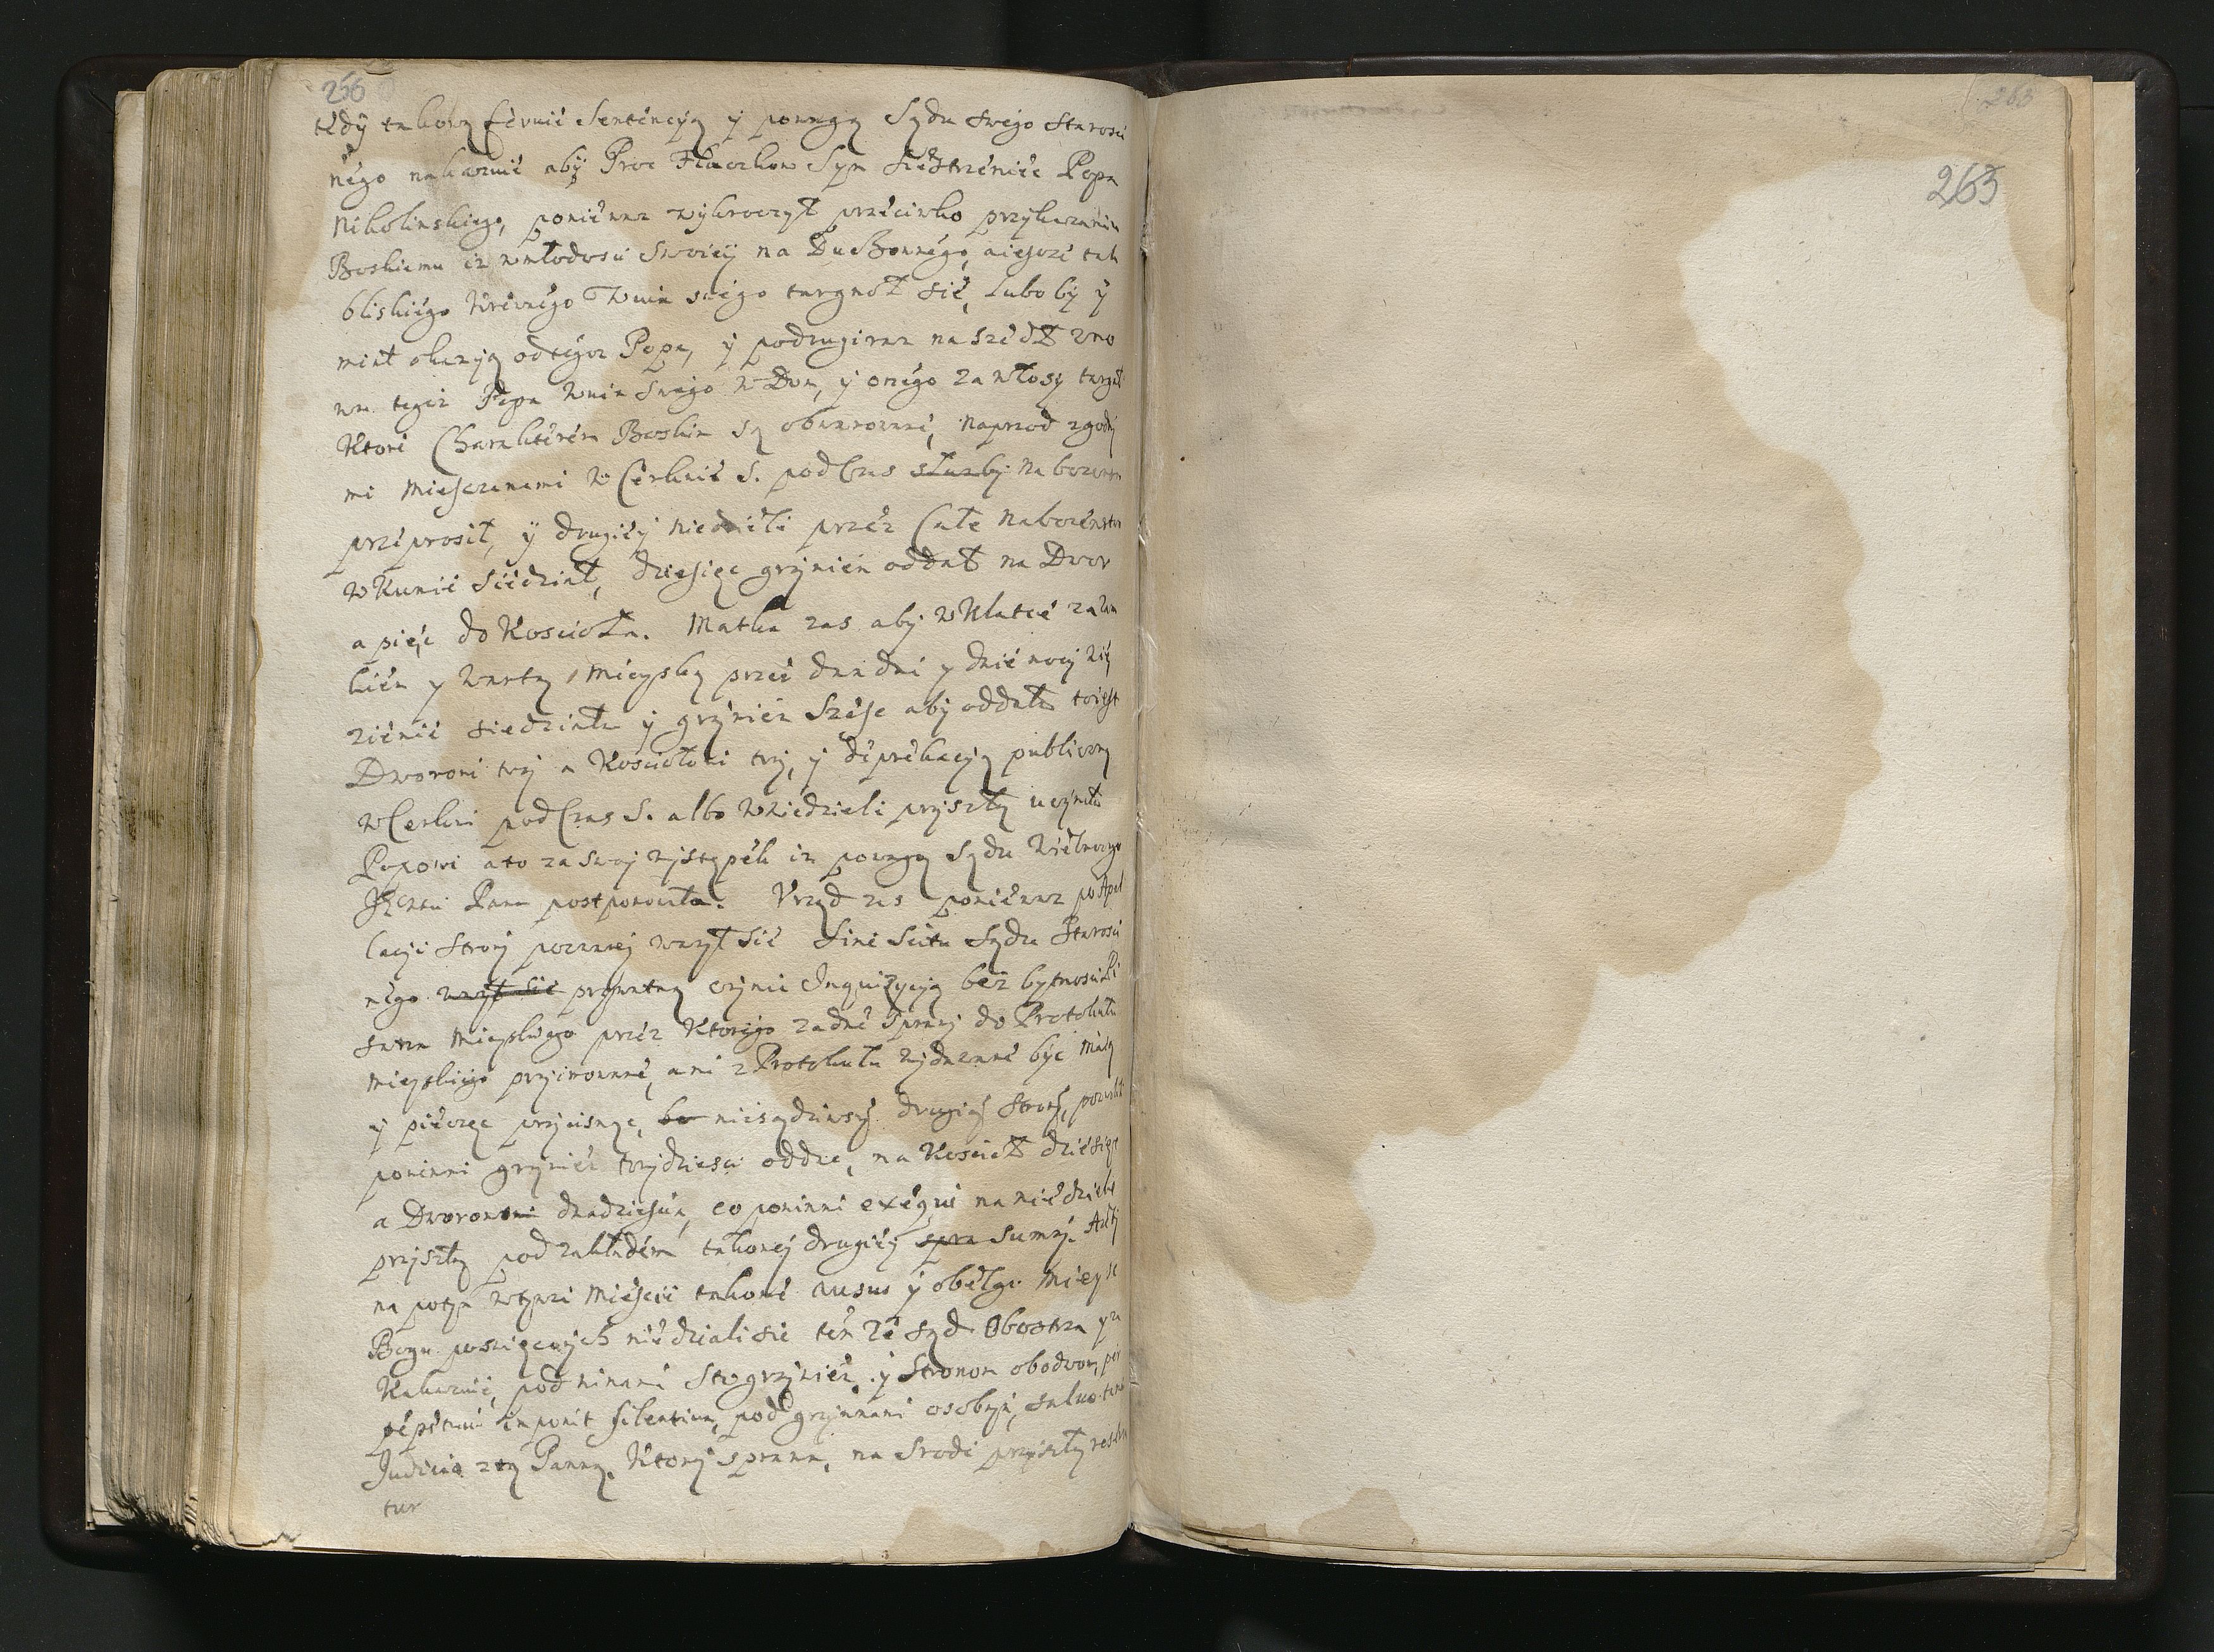 256
tedy takową feruie Sentencyą y powagą Sądu swego Starosci
nego nakazuie aby Proc Tkaczkow Syn Siestrzeniec Popa
Nikolinskiego, poniewaz wykroczył przeciwko przykazaniu
Boskiemu iz w młodosci swoiey na Duchownego, a ieszcze tak
bliskiego krewnego Wuia swego targnoł sie, lubo by y
miał okazyą od tegoz Popa, y podrugi raz naszedł zno
wu tegoz Popa Wuia swego w Dom, y onego za włosy targał
Ktore Charakterem Boskim są obwarowane, naprzod zgodny
mi Mieszczanami w Cerkwie S. pod Czas słuzby Nabozens
przeprosił, y drugiey niedzieli przez Całe Nabozenstwo
w Kunie siedział, dziesięc grzywien oddał na Dwor
a pięc do Koscioła. Matka zas aby w Klatce zam
kiem y wartą Mieyską przez dwa dni y dwie nocy Wię
zienie siedziała y grzywien Szesc aby oddała to iest
Dworowi trzy a Kosciołowi trzy, y deprekacyą publiczną
w Cerkwi pod Czas S. albo w Niedzieli przyszłą uczyniła
Popowi a to za swoy wystąpek iz powagą Sądu Wielmoznego
Pana postponowała. Vrząd zas poniewaz po Apel
lacyi Strony pozwaney wazył sie Sine Scitu Sądu Starosci
nego wazył sie prywatną czynic Inquizycyą bez bytnosci Pi
sarza Mieyskiego przez Ktorego zadne Sprawy do Protokułu
Mieyskiego przyimowane, ani z Protokułu wydawane byc maią
y pieczęc przycisnąc, bo niesądziwszy drugiey Strony, pozwol
powinni grzywien trzydziesci oddac, na Koscioł dziesięc
a Dworowi dwadziescia, co powinni exequi na niedziele
przyszłą pod zakładem takowey drugiey spra Sumy. Azeby
na potym w tymze Miescie takowe ausus y obelgi Mieysc
Bogu poswięconych nie działi sie ten ze sąd Obostrza y za
Kakazuie, pod winami Sto grzywien y Stronom obodwom per
petuum imponit silentium, pod grzywnami osobnymi, saluo tamen
Judicio z tą Panną. Ktory sprawa, na Srode przyszłą reserua
tur
263
263